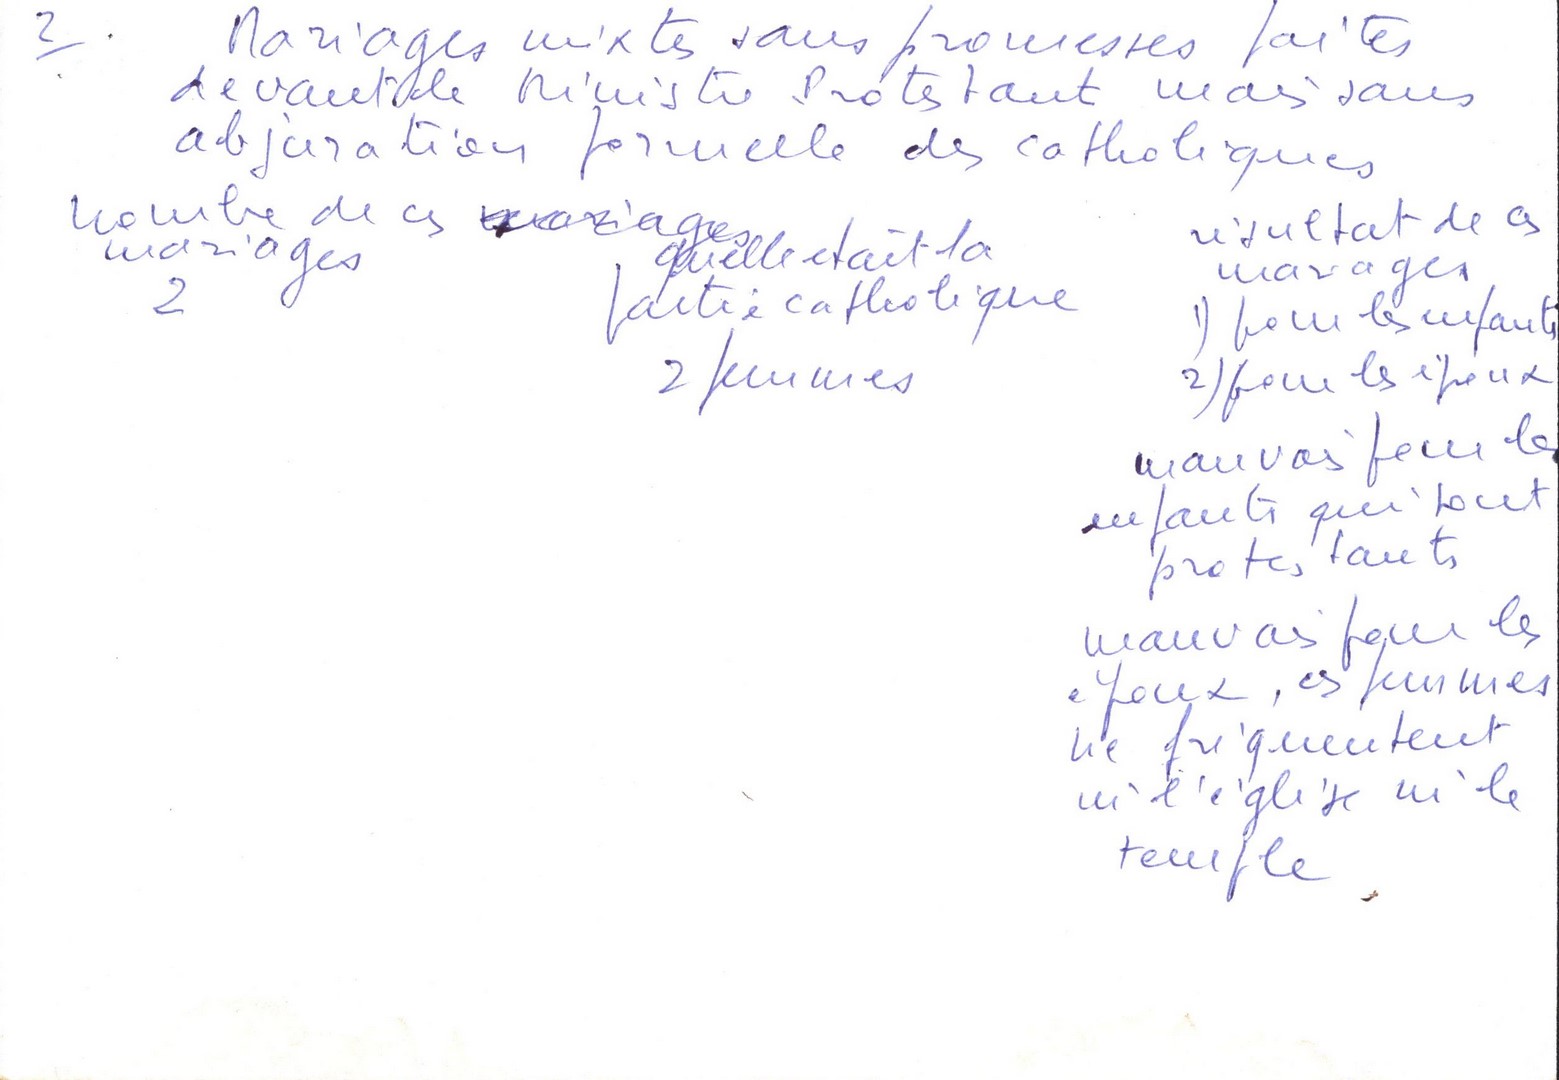 2.
Mariages mixtes sans promesses faites
devant le Ministre Protestant mais sans
abjuration formelle des catholiques
nombre de ces mariages
mariages
2
quelle était la
partie catholique
2 femmes
résultat de ces
mariages
1) pour les enfants
2) pour les époux
mauvais pour les
enfants qui sont
protestants
mauvais pour les
époux, ces femmes
ne fréquentent
ni l'église ni le
temple